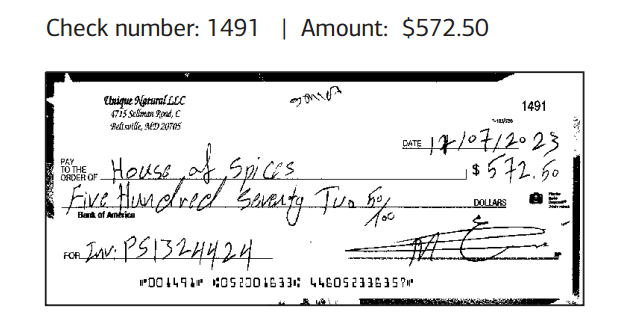 Check number: 1491 | Amount: $572.50
Unique Natural LLC
4715 Sellman Road, C
Beltsville, MD 20705
1491
DATE 12/07/2023
PAY TO THE ORDER OF House of Spices $ 572.50
Five Hundred Seventy Two 50/100 DOLLARS
Bank of America
FOR Inv: PSI324424
⑈001491⑈ ⑆052001633⑆ 446052338357⑈